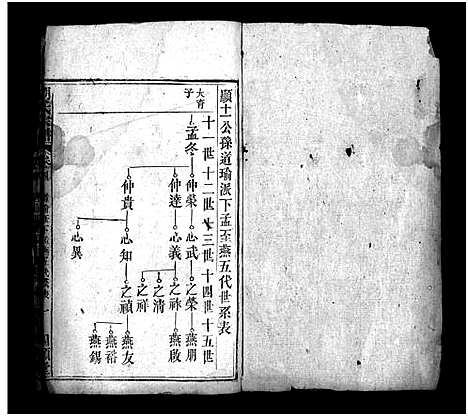 顯十一公孫道瑜派下孟至燕五代世系表
十一世十二世十三世十四世十五世
大育
子
孟冬
仲榮 心武 之榮 燕朋
仲達 心義 之祚 燕啟
之清
之祥
仲貴 心知 之禎 燕友
燕裕
燕錫
心異